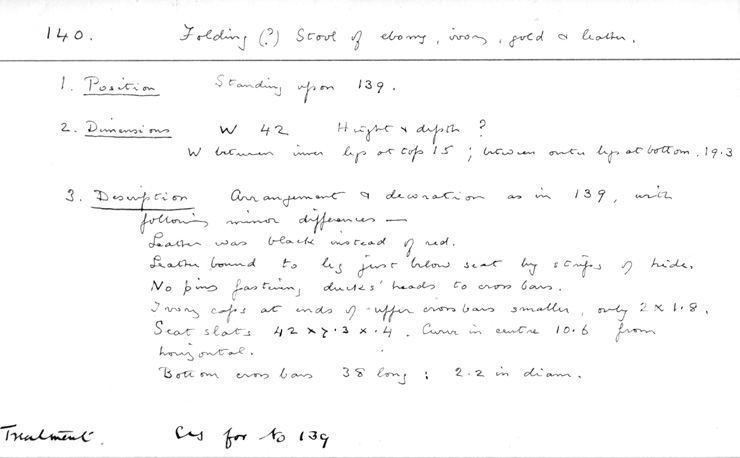 140. Folding (?) Stool of ebony, ivory, gold & leather.
1. Position Standing upon 139.
2. Dimensions W 42 Height & depth ?
W between inner legs at top 15 ; between outer legs at bottom. 19.3
3. Description Arrangement & decoration as in 139, with
following minor differences —
Leather was black instead of red.
Leather bound to leg just below seat by strips of hide.
No pins fastening ducks' heads to cross bars.
Ivory caps at ends of upper cross bars smaller, only 2 x 1.8.
Seat slats 42 x 7.3 x .4. Curve in centre 10.6 from
horizontal.
Bottom cross bars 38 long ; 2.2 in diam.
Treatment. As for No 139